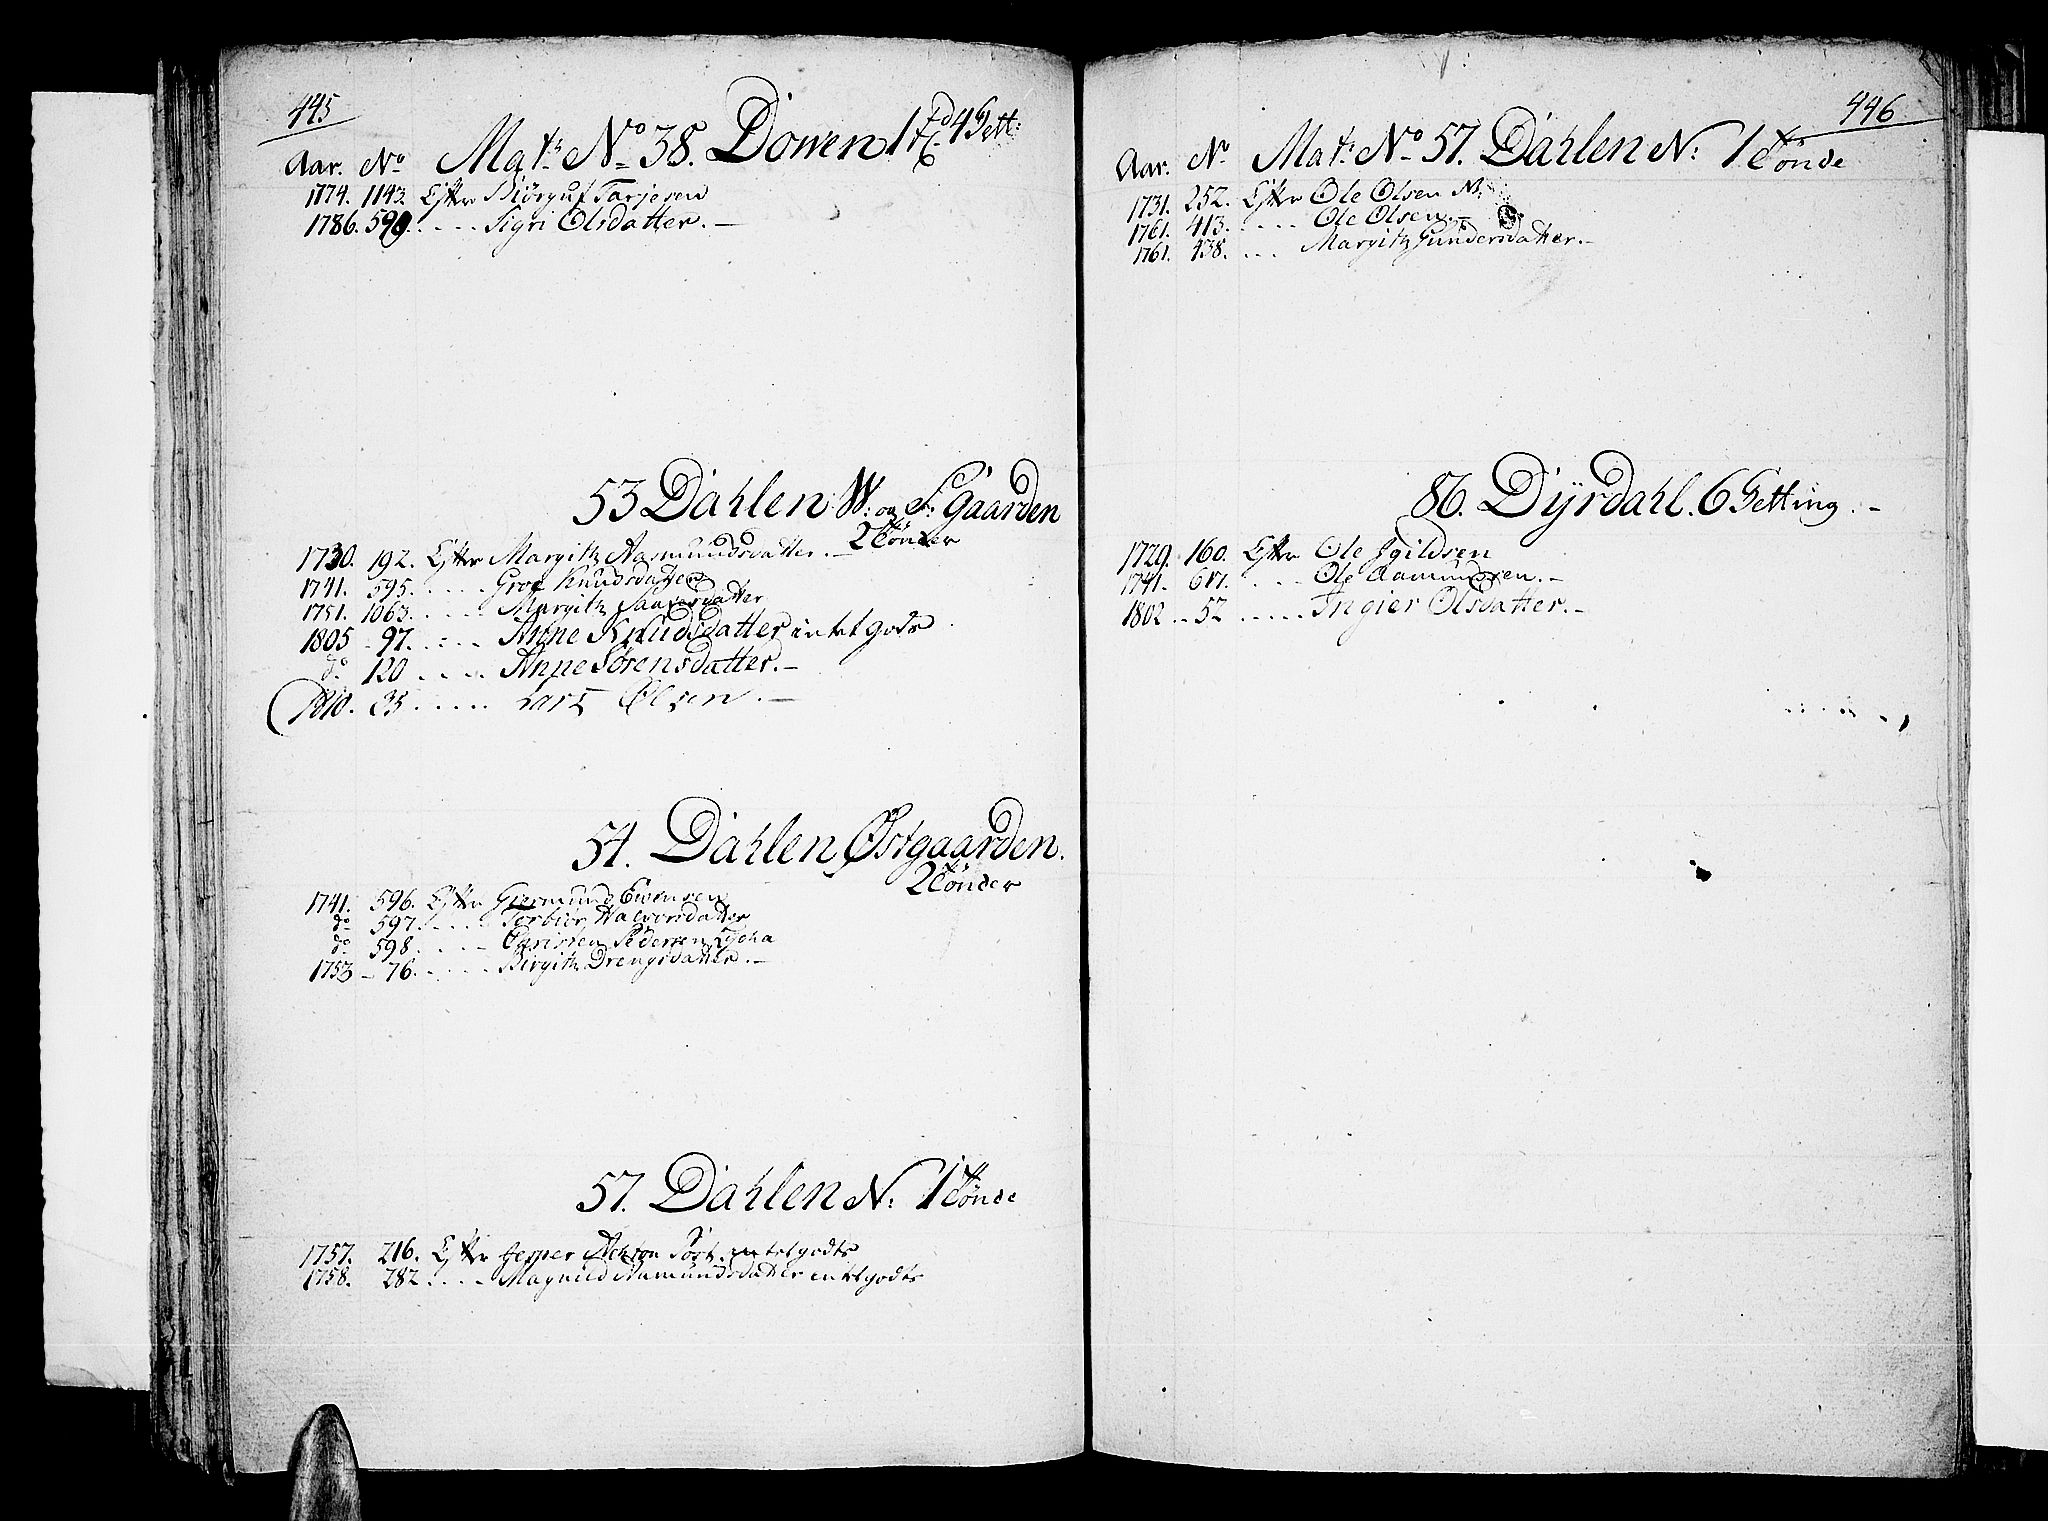 445
Aar. No Matr No 38. Dowen 1 Td 4 Sett:
1774. 1143. Efter Biørguf Tarjesen
1786. 590. .... Sigri Olsdatter. —
53 Dahlen W: og S: Gaarden
2 Tønder
1730. 192. Efter Margith Aasmundsdatter. —
1741. 595. .... Groe Knudsdatter
1751. 1063. .... Margith Saavesdatter
1805 - 97. .... Anne Knudsdatter intet gods
do 120 .... Anne Sørensdatter. —
1810. 35 ..... Lars Olsen. —
54. Dahlen Østgaarden.
2 Tønder
1741. 596. Efter Giermund Evensen
do 597. .... Torbiør Halvorsdatter
do 598. .... Christen Pedersen
1753 - 76. .... Birgith Drengsdatter. —
57. Dahlen N: 1 Tønde
1757. 216. Efter Jesper intet gods
1758. 282. .... Magnild Aamundsdatter intet gods
446
Aar. No Matr No 57. Dahlen N: 1 Tønde
1731. 252. Efter Ole Olsen N:
1761. 413. .... Ole Olsen. —
1761. 438. ... Margith Gundersdatter. —
86. Dÿrdahl. 6 Setting. —
1729. 160. Efter Ole Igildsen
1741. 617. .... Ole Aamundsen. —
1802 .. 52 ..... Ingier Olsdatter. —